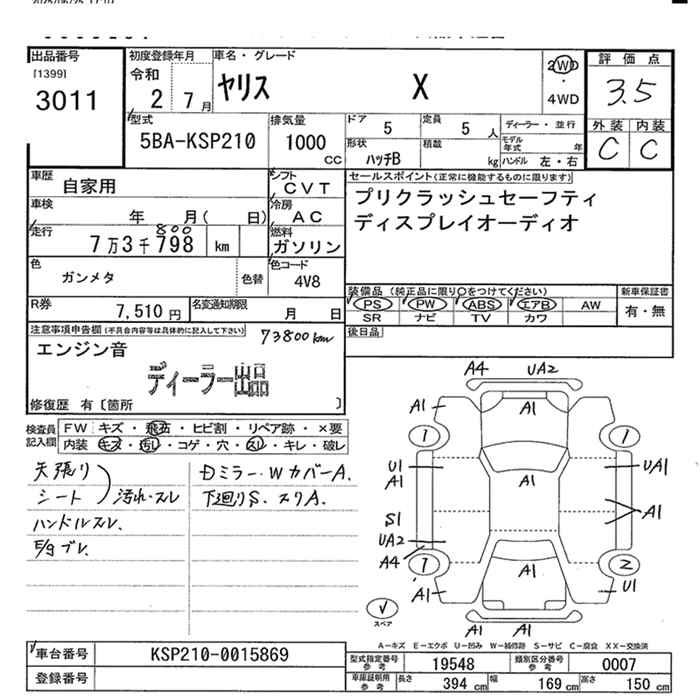 出品番号
[1399]
3011
初度登録年月
令和
2 7月
車名・グレード
ヤリス X
2WD
・
4WD
評価点
3.5
外装 内装
C C
型式
5BA-KSP210
排気量
1000
CC
ドア 5
定員 5 人
形状 ハッチB
積載 kg
ディーラー・並行
モデル年式 年
ハンドル 左・右
車歴
自家用
シフト
CVT
車検
年 月( 日)
冷房
AC
走行
800
7万3千798 km
燃料
ガソリン
色
ガンメタ
色替
色コード
4V8
セールスポイント(正常に機能するものに限ります)
プリクラッシュセーフティ
ディスプレイオーディオ
R券
7,510円
名変通知期限
月 日
装備品(純正品に限り○をつけてください)
PS PW ABS エアB AW
SR ナビ TV カワ
新車保証書
有・無
後日品
注意事項申告欄(不具合内容等は具体的に記入して下さい)
73800km
エンジン音
ディーラー出品
修復歴 有〔箇所 〕
検査員
記入欄
FW キズ・飛石・ヒビ割・リペア跡・×要
内装 キズ・汚れ・コゲ・穴・スレ・キレ・破レ
天張り
シート 汚れ・スレ
ハンドルスレ.
E/gブレ.
Dミラー・WカバーA.
下廻りS. スリA.
A4 UA2
A1 A1
1 1
A1
U1 UA1
A1
A1
S1
UA2
A4
A1
1 2
A1 U1
A1 A1
✓
スペア
A-キズ E-エクボ U-凹み W-補修跡 S-サビ C-腐食 XX-交換済
車台番号
KSP210-0015869
登録番号
型式指定番号
参考
19548
類別区分番号
参考
0007
車庫証明用
参考
長さ 394 cm
幅 169 cm
高さ 150 cm